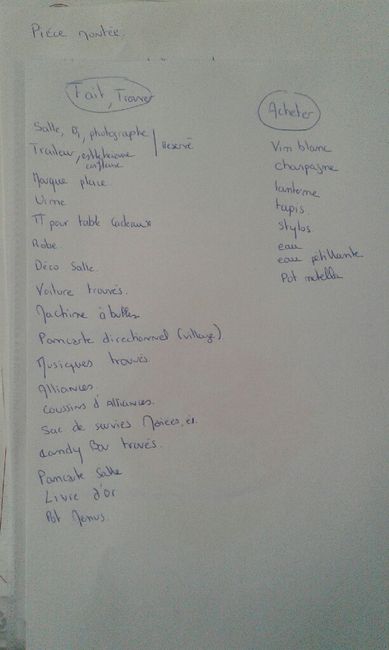 Pièce montée.
Fait, Trouver
Salle, Dj, photographe
Traiteur, esthéticienne
Reservé
Marque place
Urne
pour table cadeaux
Robe
Déco Salle.
Voiture trouvés.
Machine à bulles
Pancarte directionnel (village)
Musiques trouvés.
Alliances
Coussins d'Alliances.
Sac de survies Mariées,
Candy Bar trouvés.
Pancarte Salle
Livre d'or
Pot Menus.
Acheter
Vin blanc
champagne
lanterne
tapis.
stylos
eau
eau pétillante
Pot nutella